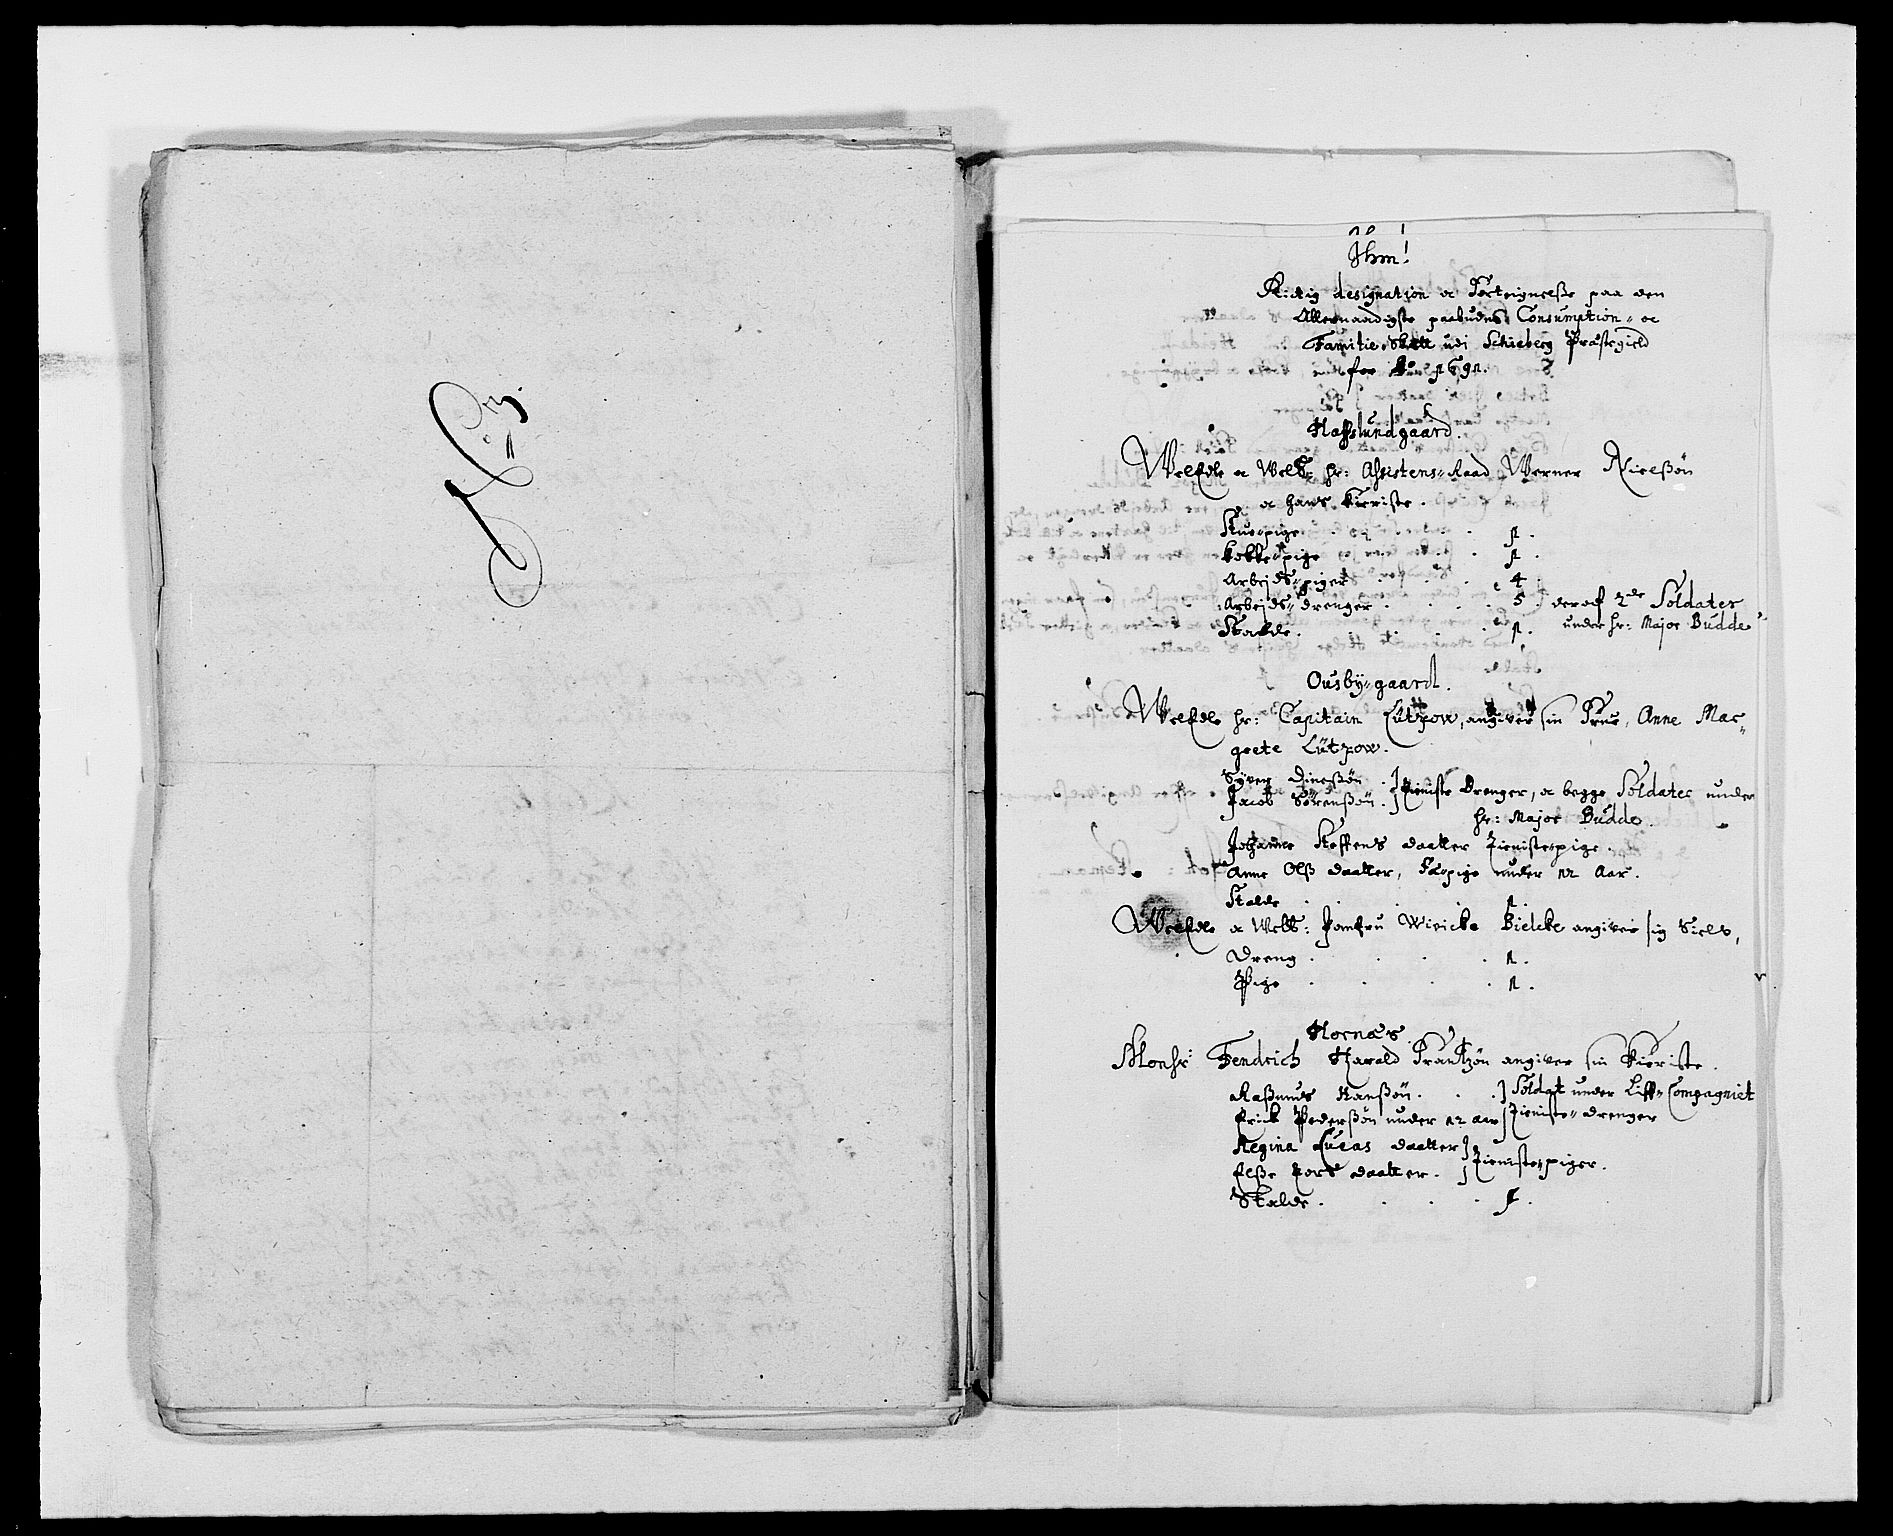 Jhm!
Rigtig designation oc Forteignelße paa den
Allernaadigste paabudne Consumption- oc
Familie-Skatt udi Schieberg Præstegield
for Ao 1691.
Haffslundgaard.
WelEdle oc Welb: hr: Assistens-Raad Werner Nielßøn
oc hans kieriste.
Stue-pige . . . 1.
kokke-pige . . . 1.
Arbejds-piger . . . 4
Arbejds-drenger . . . 5. deraf 2de Soldater
under hr: Major Budde
Stalde . . . 1.
Ousby-gaard.
WelEdle hr: Capitain Lützow, angiver sin Frue, Anne Mar-
grete Lützow.
Syver Dineßøn
Jacob Sørenßøn } Tieniste Drenger, oc begge Soldater under
hr: Major Budde.
Johanne Steffens daatter Tieniste-pige.
Anne Olß daatter, Fæ-pige under 12 Aar.
Stalde . . . 1.
WelEdle oc Welb: Jomfru Wivicke Bielcke angiver sig Sielv,
Dreng . . . 1.
Pige . . . 1.
Hornæs.
Monsr: Fendrich Harald Frantzøn angiver sin Kieriste.
Raßmus Hanßøn . . . } Soldat under Liff-Compagniet
Erick Pederßøn under 12 aar } Tieniste-drenger
Regina Lucas daatter }
Elße Tors daatter. } Tieniste-piger.
Stalde . . . 1.